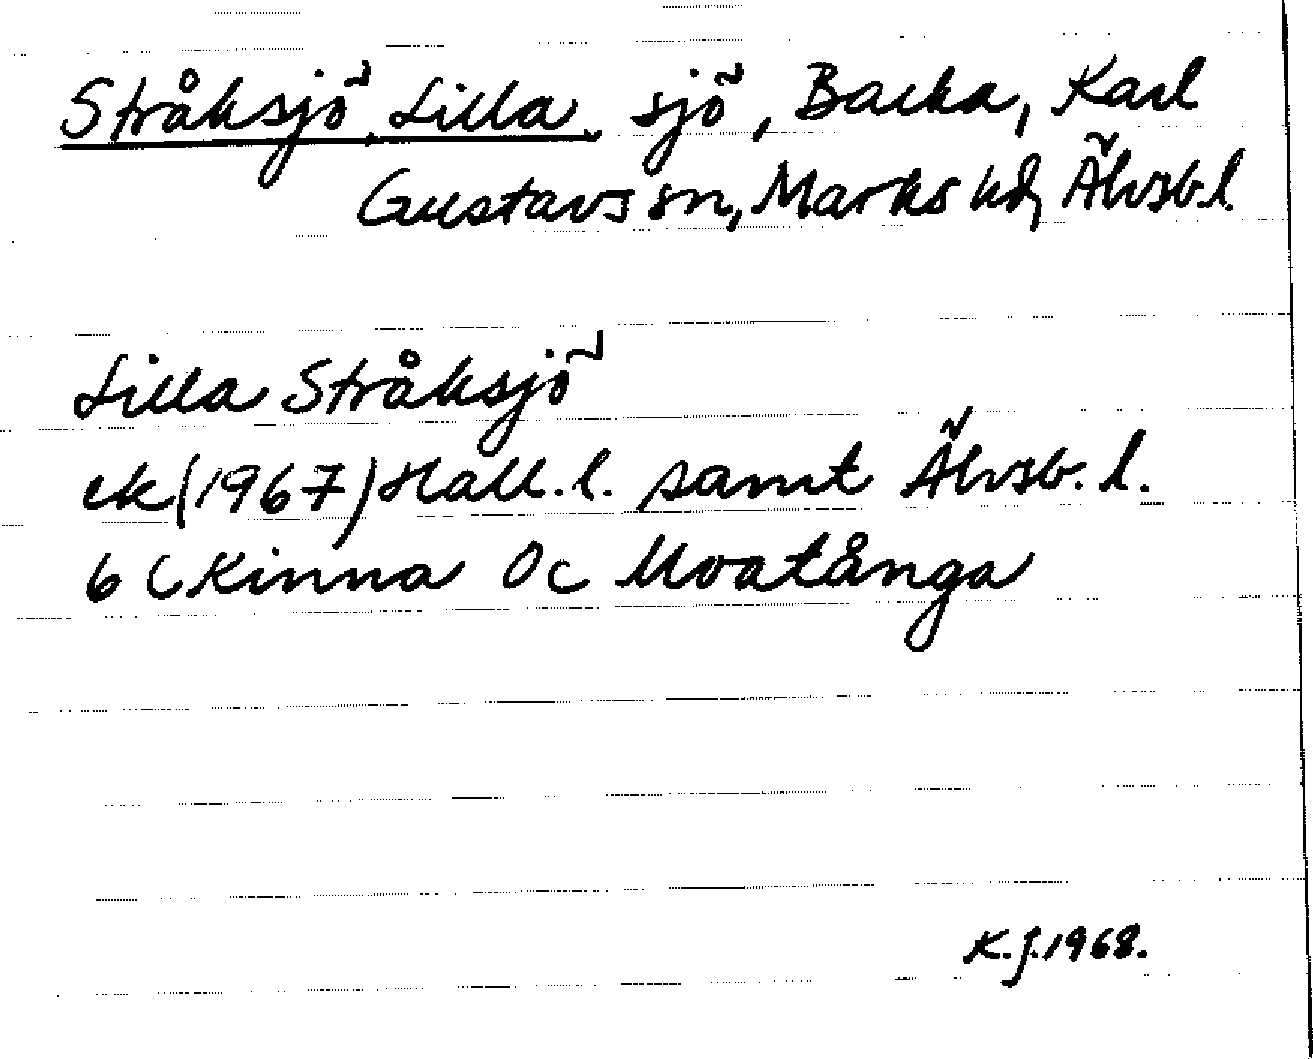 Stråksjö, Lilla, sjö, Backa, Karl
Gustavs sn, Marks hd, Älvsb.l.
Lilla Stråksjö
ek (1967) Hall.l. samt Älvsb.l.
6 C Kinna 0c Mvatånga
K.J.1968.